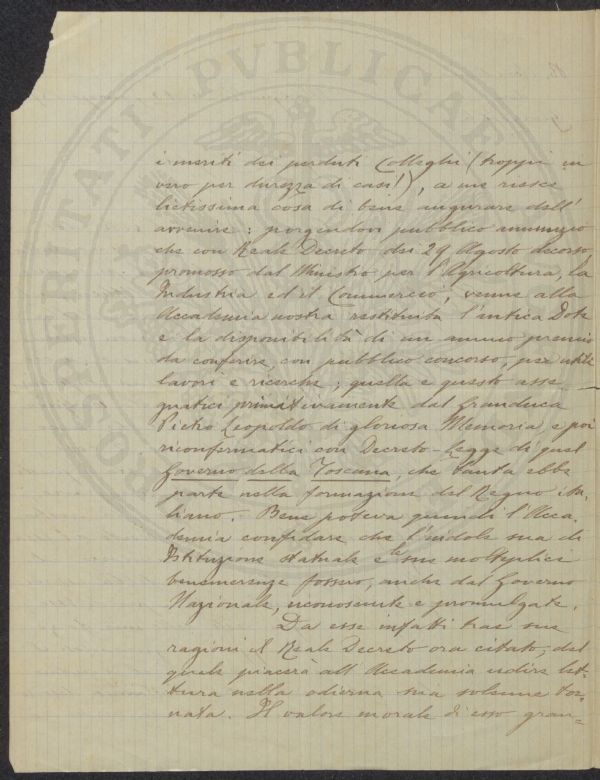 PROSPERITATI PVBLICAE
i meriti dei perduti Colleghi (troppi in
vero per durezza di casi!), a me riesce
lietissima cosa di bene augurare dell'
avvenire: porgendovi pubblico annunzio
che con Reale Decreto dei 29 Agosto decorso,
promosso dal Ministro per l'Agricoltura, la
Industria ed il Commercio, venne alla
Accademia nostra restituita l'antica Dote
e la disponibilità di un annuo premio
da conferire, con pubblico concorso, per utili
lavori e ricerche; quella e questo asse=
gnatici primitivamente dal Granduca
Pietro Leopoldo di gloriosa Memoria e poi
riconfermatici con Decreto-Legge di quel
Governo della Toscana, che tanta ebbe
parte nella formazione del Regno ita=
liano. Bene poteva quindi l'Acca=
demia confidare che l'indole sua di
Istituzione statuale e le sue molteplici
benemerenze fossero, anche dal Governo
Nazionale, riconosciute e promulgate.
Da esse infatti trae sue
ragioni il Reale Decreto ora citato; del
quale piacerà all'Accademia udire let=
tura nella odierna sua solenne tor=
nata. Il valore morale di esso gran=